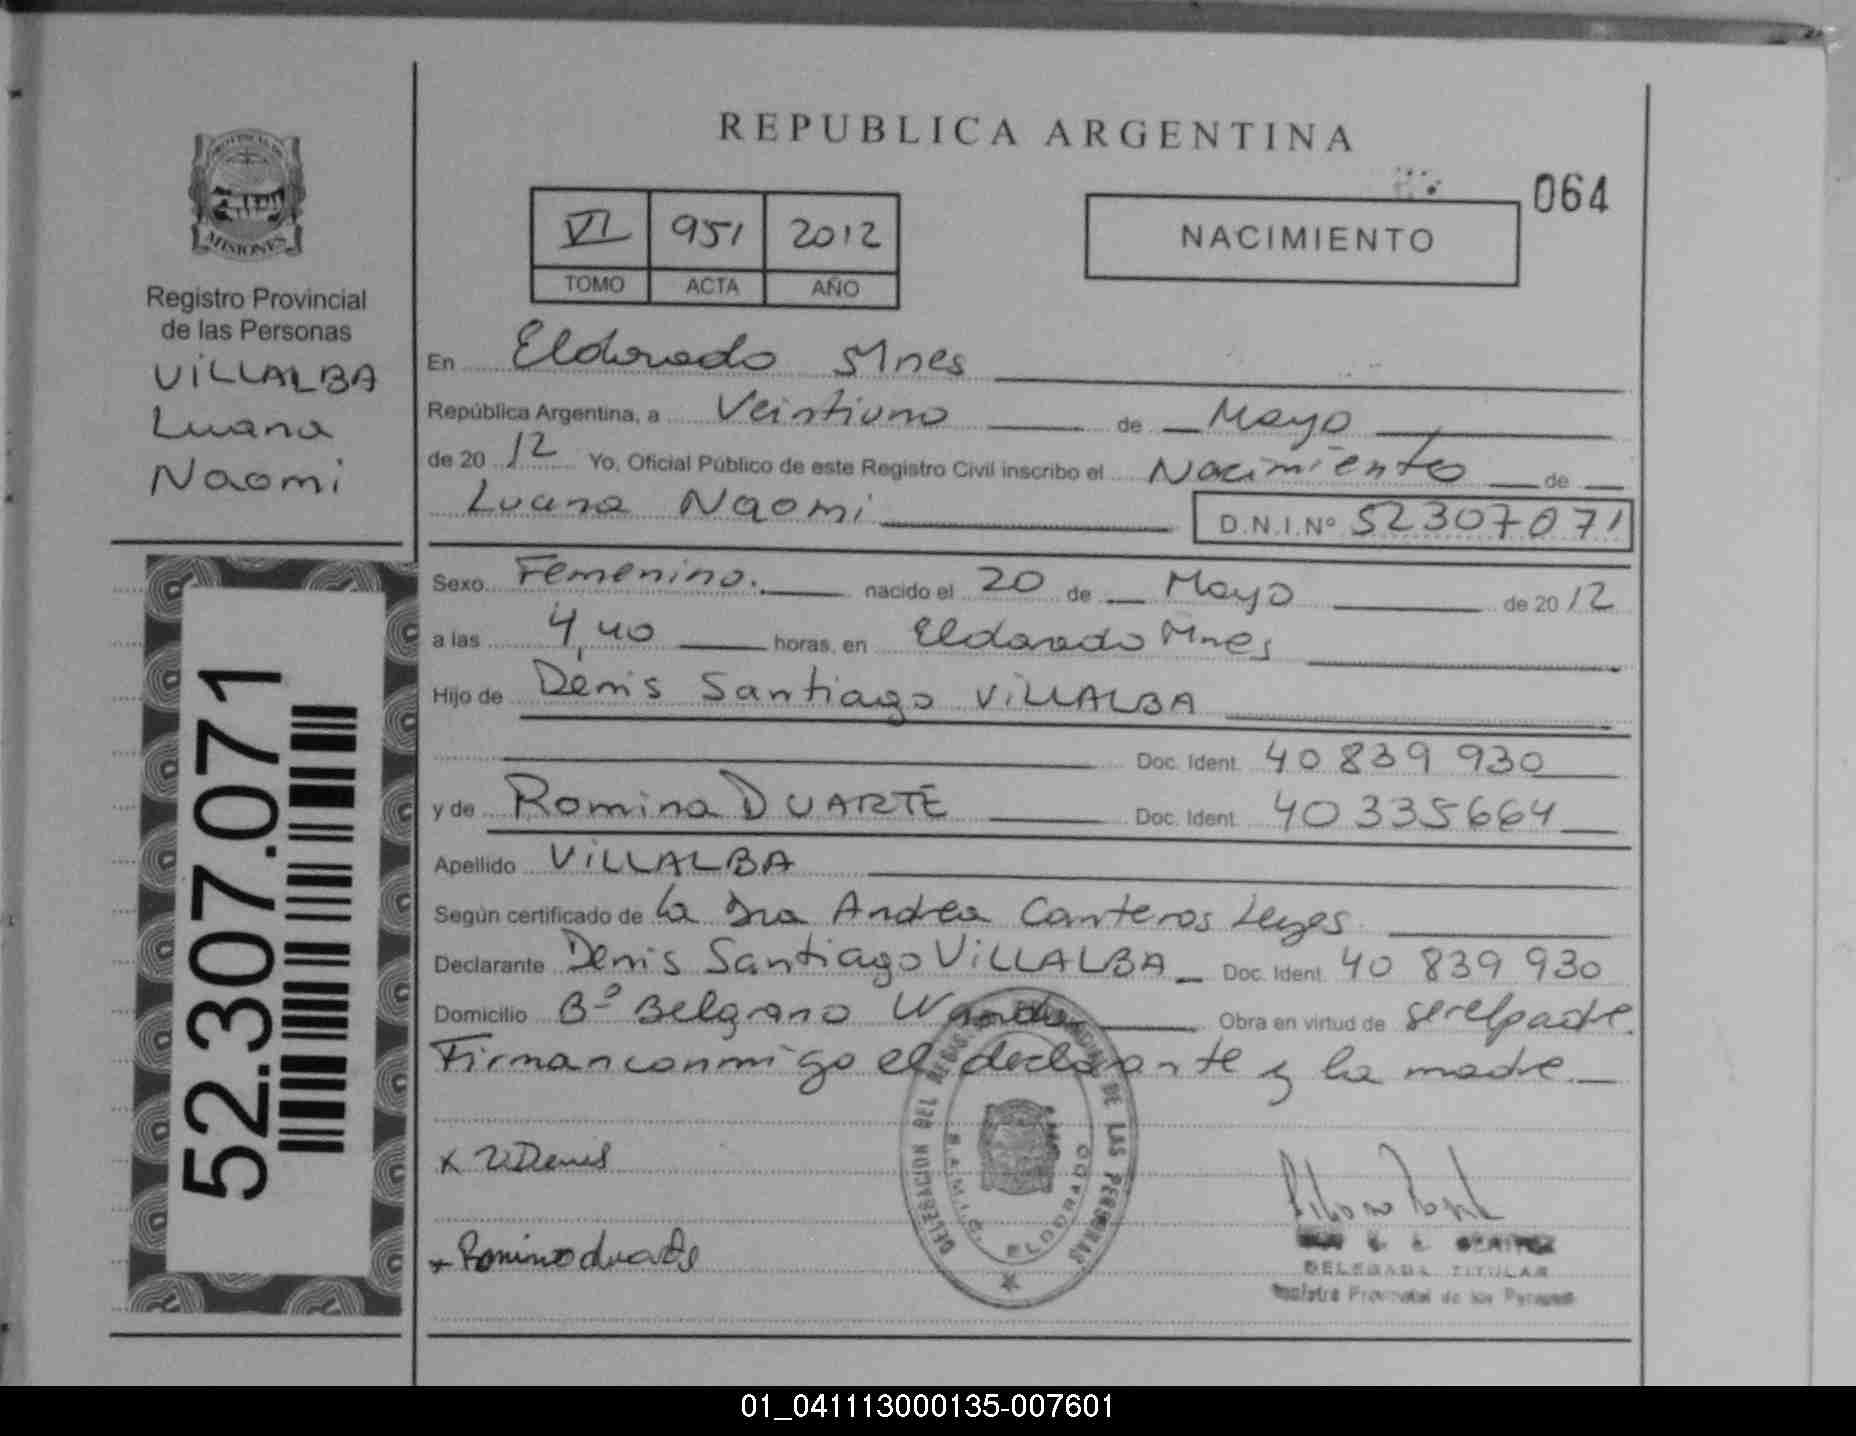 REPUBLICA ARGENTINA
064
VI 951 2012
TOMO ACTA AÑO
NACIMIENTO
PROVINCIA DE
MISIONES
Registro Provincial
de las Personas
VILLALBA
Luana
Naomi
52.307.071
En Eldorado Mnes
República Argentina, a Veintiuno de Mayo
de 2012 Yo, Oficial Público de este Registro Civil inscribo el Nacimiento de
Luana Naomi D.N.I.Nº 52307071
Sexo Femenino. nacido el 20 de Mayo de 2012
a las 4,40 horas, en Eldorado Mnes
Hijo de Denis Santiago VILLALBA
Doc. Ident. 40 839 930
y de Romina DUARTE Doc. Ident. 40335664
Apellido VILLALBA
Según certificado de la Dra Andrea Canteros Leyes
Declarante Denis Santiago VILLALBA Doc. Ident. 40 839 930
Domicilio Bº Belgrano Wanda Obra en virtud de ser el padre.
Firman conmigo el declarante y la madre.
x V Denis
x Romina duarte
DELEGACION DEL REGISTRO PROVINCIAL DE LAS PERSONAS
ELDORADO
DELEGADA TITULAR
Registro Provincial de las Personas
01_041113000135-007601